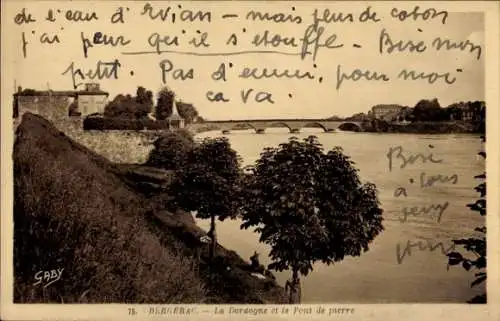 de l'eau d'Arvian - mais peu de coton
j'ai peur qu'il s'étouffe - Bise mon
petit. Pas d'ennui pour moi
ça va.
Bise
à tous
GABY
75. BERGERAC. - La Dordogne et le Pont de pierre